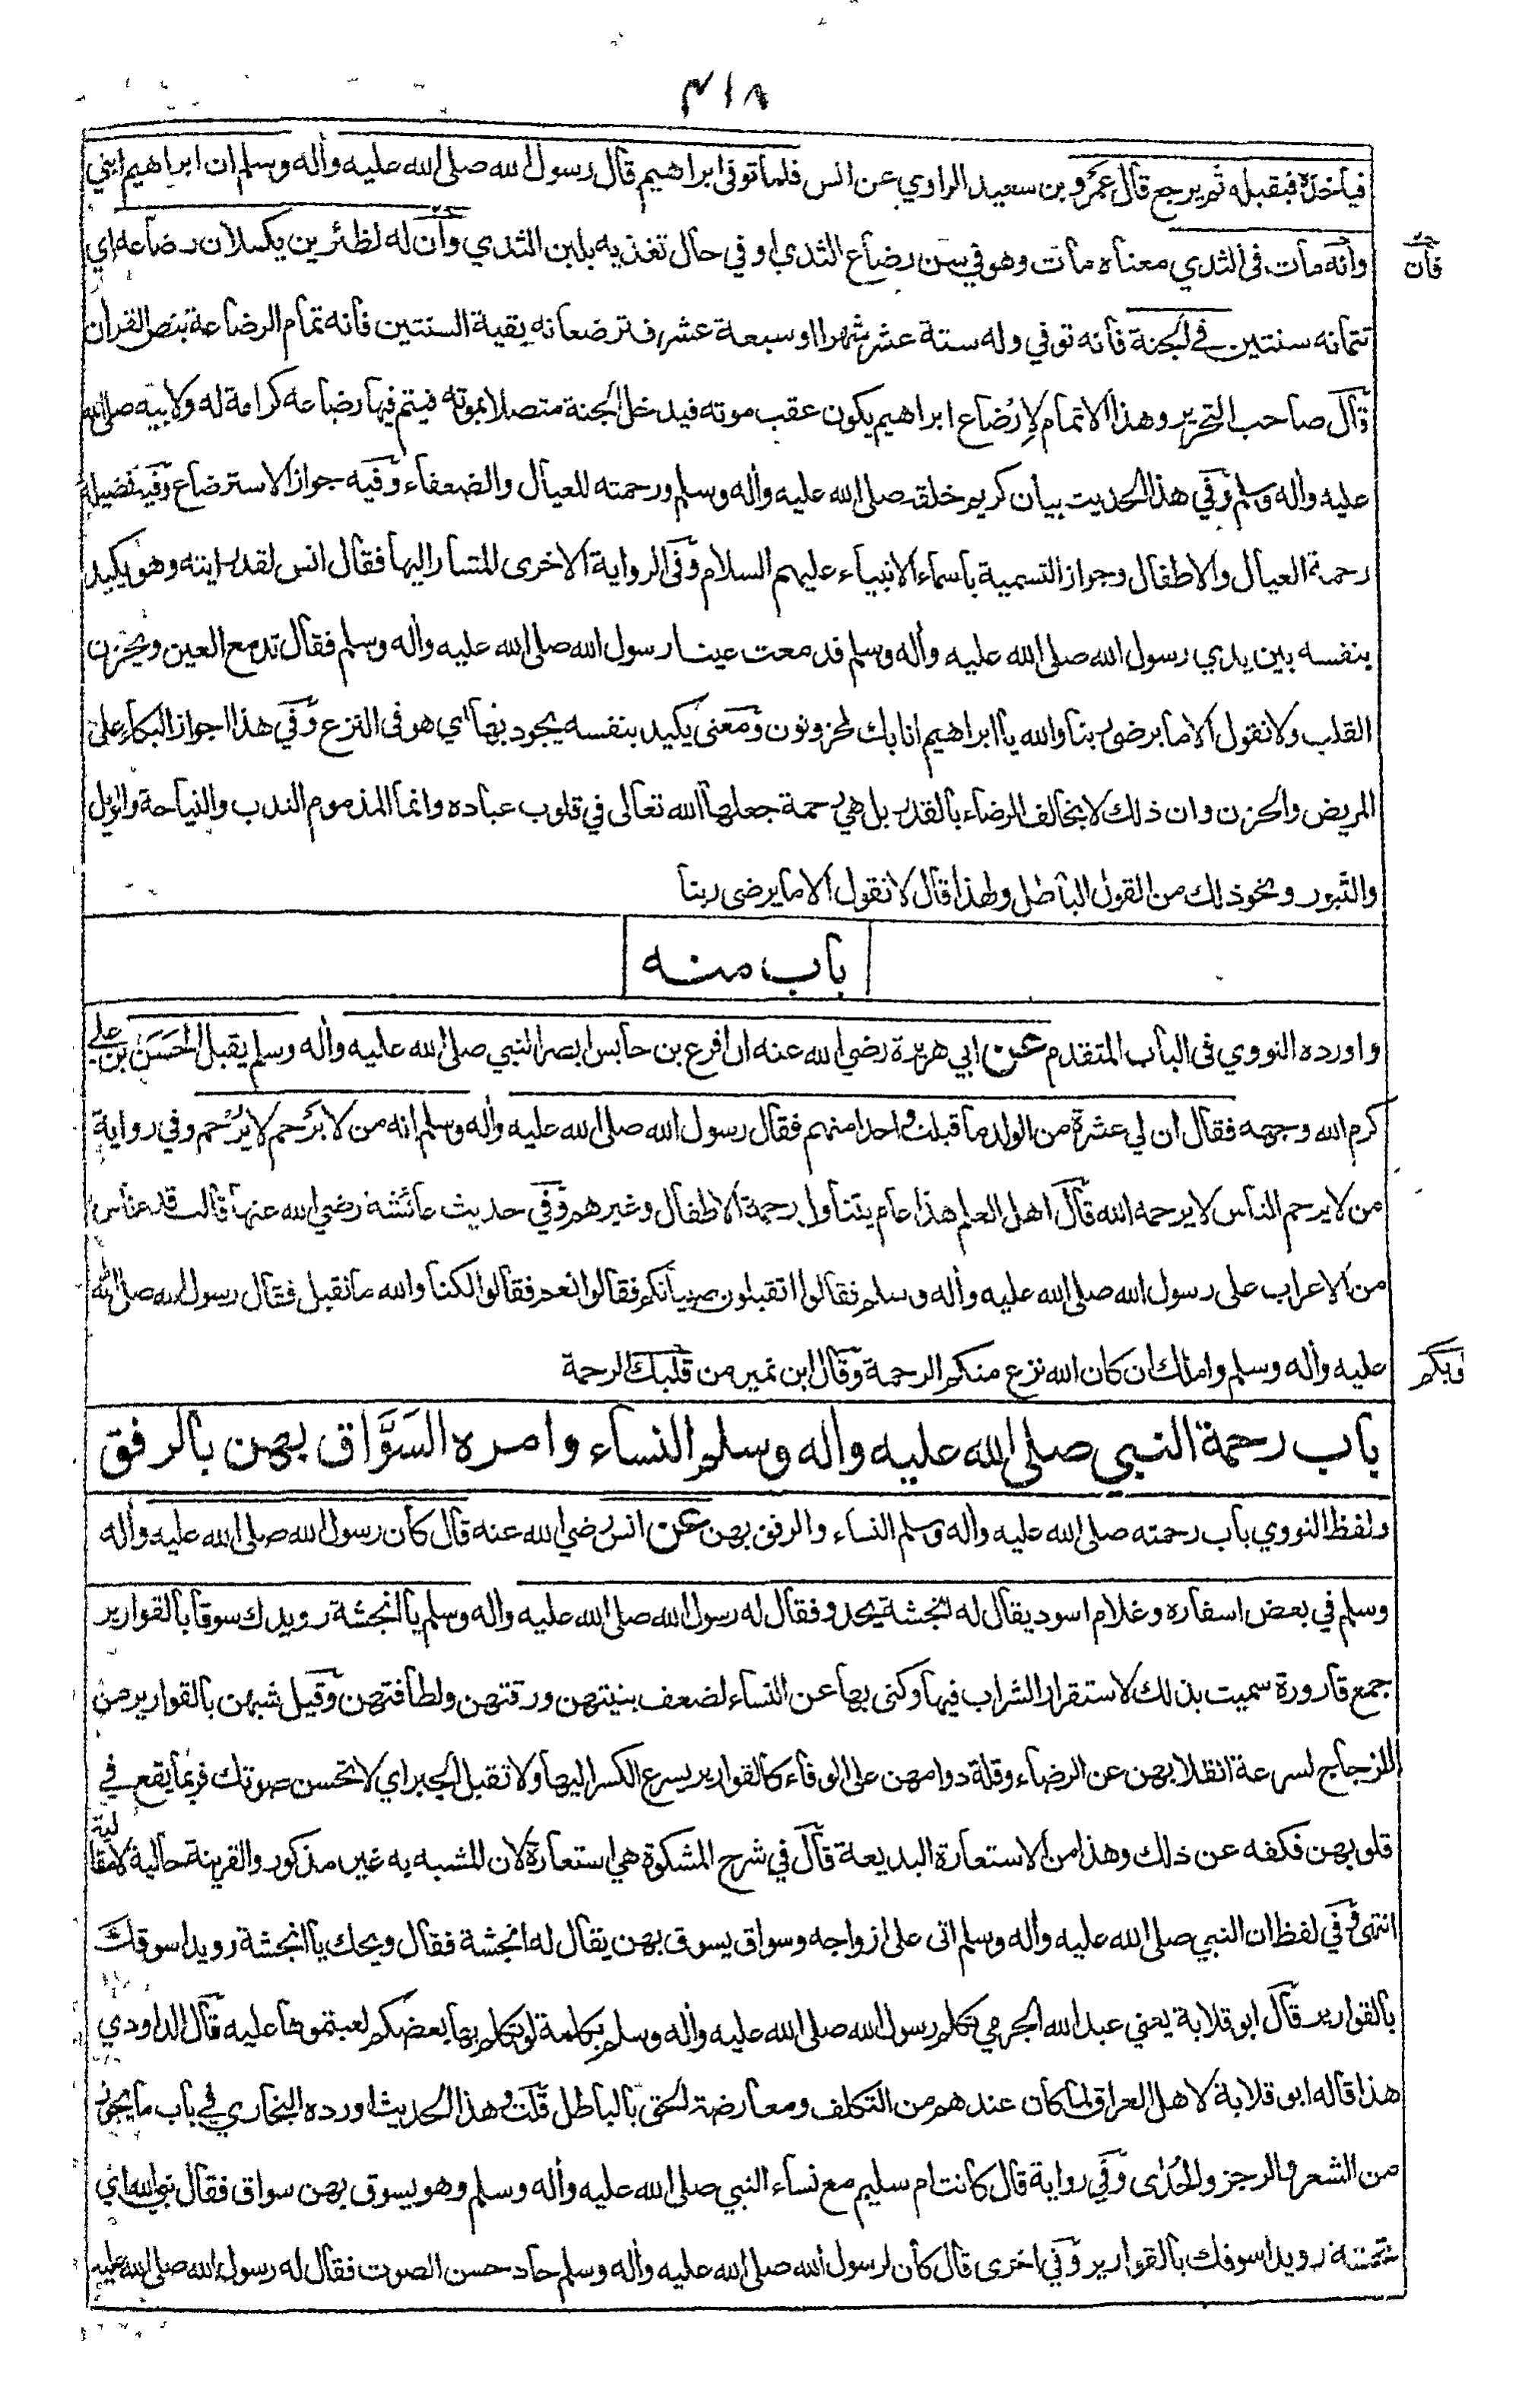 ٤١٨
فيأخذه فيقبله ثم يرجع قال عمرو بن سعيد الراوي عن انس فلما توفى ابراهيم قال رسول الله صلى الله عليه وأله وسلم ان ابراهيم ابني
وأنه مات فى الثدي معناه مات وهو في سن رضاع الثدي او في حال تغذيه بلبن الثدي وأن له لظئرين يكملان رضاعه اي
فأن
تتمانه سنتين في الجنة فأنه توفي وله ستة عشر شهرا او سبعة عشر فترضعانه بقية السنتين فأنه تمام الرضاعة بنص القرأن
قال صاحب التحرير وهذا الاتمام لإرضاع ابراهيم يكون عقب موته فيدخل الجنة متصلا بموته فيتم فيها رضاعه كرامة له ولابيه صلى الله
عليه واله وسلم وفي هذا الحديث بيان كريم خلقه صلى الله عليه وأله وسلم ورحمته للعيال والضعفاء وفيه جواز الاسترضاع وفيه فضيلة
رحمة العيال والاطفال وجواز التسمية باسماء الانبياء عليهم السلام وفى الرواية الاخرى المشار اليها فقال انس لقد رايته وهو يكيد
بنفسه بين يدي رسول الله صلى الله عليه وأله وسلم فدمعت عينا رسول الله صلى الله عليه وأله وسلم فقال تدمع العين ويحزن
القلب ولا نقول الا ما يرضى ربنا والله يا ابراهيم انا بك لمحزونون ومعنى يكيد بنفسه يجود بها اي هو فى النزع وفي هذا جواز البكاء على
المريض والحزن وان ذلك لا يخالف الرضاء بالقدر بل هي رحمة جعلها الله تعالى في قلوب عباده وانما المذموم الندب والنياحة والويل
والثبور ونحو ذلك من القول الباطل ولهذا قال لا نقول الا ما يرضى ربنا
باب منه
واورده النووي فى الباب المتقدم عن ابي هريرة رضي الله عنه ان اقرع بن حابس ابصر النبي صلى الله عليه وأله وسلم يقبل الحسن بن علي
كرم الله وجهه فقال ان لي عشرة من الولد ما قبلت واحدا منهم فقال رسول الله صلى الله عليه وأله وسلم انه من لا يرحم لا يرحم وفي رواية
من لا يرحم الناس لا يرحمه الله قال اهل العلم هذا عام يتناول رحمة الاطفال وغيرهم وفي حديث عائشة رضي الله عنها قالت قدم ناس
من الاعراب على رسول الله صلى الله عليه وأله وسلم فقالوا اتقبلون صبيانكم فقالوا نعم فقالوا لكنا والله ما نقبل فقال رسول الله صلى الله
عليه وأله وسلم واملك ان كان الله نزع منكم الرحمة وقال ابن نمير من قلبك الرحمة
باب رحمة النبي صلى الله عليه واله وسلم النساء وامره السَوَّاق بهن بالرفق
ولفظ النووي باب رحمته صلى الله عليه وأله وسلم النساء والرفق بهن عن انس رضي الله عنه قال كان رسول الله صلى الله عليه وأله
وسلم في بعض اسفاره وغلام اسود يقال له انجشة يحدو فقال له رسول الله صلى الله عليه وأله وسلم يا انجشة رويدك سوقا بالقوارير
جمع قارورة سميت بذلك لاستقرار الشراب فيها وكنى بها عن النساء لضعف بنيتهن ورقتهن ولطافتهن وقيل شبهن بالقوارير من
الزجاج لسرعة انقلابهن عن الرضاء وقلة دوامهن على الوفاء كالقوارير يسرع الكسر اليها ولا تقبل الجبر اي لا تحسن صوتك فربما يقع في
قلوبهن فكفه عن ذلك وهذا من الاستعارة البديعة قال في شرح المشكوة هي استعارة لان المشبه به غير مذكور والقرينة حالية لا مقالية
انتهى وفي لفظ ان النبي صلى الله عليه وأله وسلم اتى على ازواجه وسواق يسوق بهن يقال له انجشة فقال ويحك يا انجشة رويدا سوقك
بالقوارير قال ابو قلابة يعني عبد الله الجرمي تكلم رسول الله صلى الله عليه وأله وسلم بكلمة لو تكلم بها بعضكم لعبتموها عليه قال الداودي
هذا قاله ابو قلابة لاهل العراق لما كان عندهم من التكلف ومعارضة الحق بالباطل قلت وهذا الحديث اورده البخاري في باب ما يجوز
من الشعر والرجز والحدى وفي رواية قال كانت ام سليم مع نساء النبي صلى الله عليه وأله وسلم وهو يسوق بهن سواق فقال نبي الله اي
رويدا سوقك بالقوارير وفي اخرى قال كان لرسول الله صلى الله عليه وأله وسلم حاد حسن الصوت فقال له رسول الله صلى الله عليه